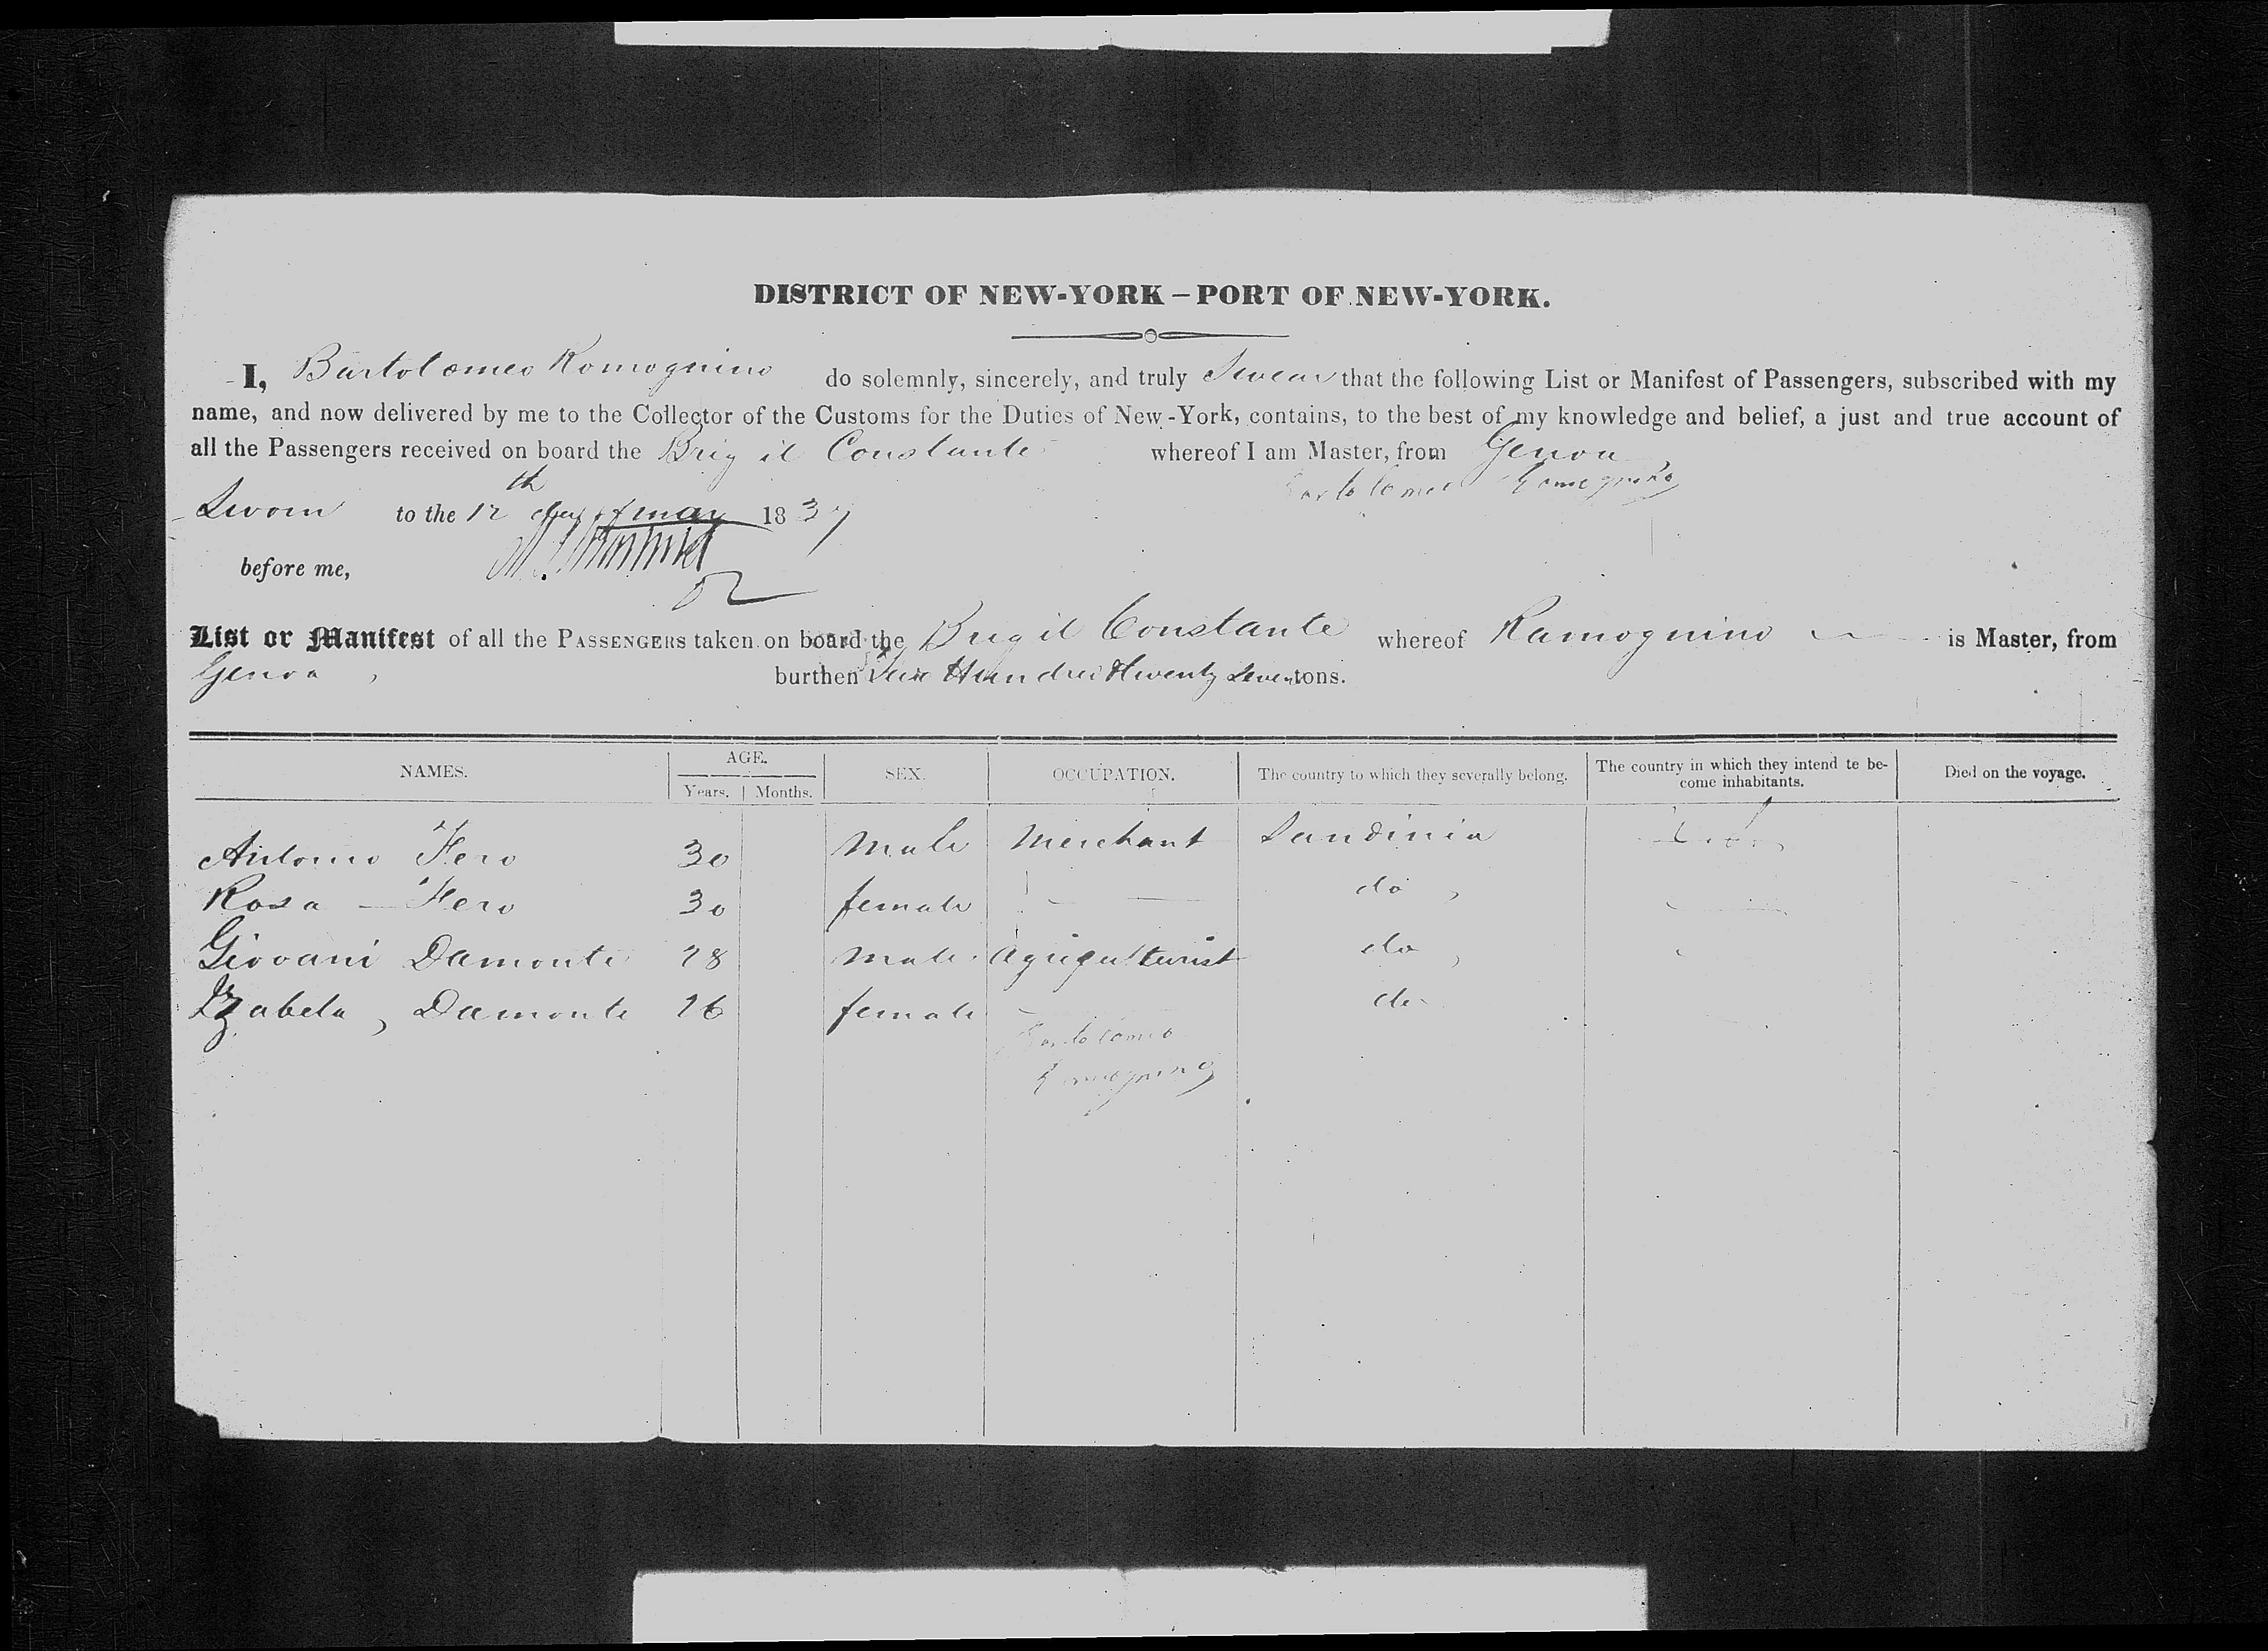 DISTRICT OF NEW-YORK – PORT OF NEW-YORK.
I, Bartolomeo Romognino do solemnly, sincerely, and truly Swear that the following List or Manifest of Passengers, subscribed with my
name, and now delivered by me to the Collector of the Customs for the Duties of New-York, contains, to the best of my knowledge and belief, a just and true account of
all the Passengers received on board the Brig il Constante whereof I am Master, from Genoa
Bartolomeo Romognino
Sworn to the 12th day of may 1837
before me,
List or Manifest of all the PASSENGERS taken on board the Brig il Constante whereof Ramognino is Master, from
Genoa, burthen Hundred twenty seven tons.
NAMES. AGE. SEX. OCCUPATION. The country to which they severally belong. The country in which they intend te be- Died on the voyage.
Years. Months. come inhabitants.
Antonio Fero 30 Male Merchant Sandinia
Rosa — Fero 30 female — do,
Giovani Damonte 28 Male agriqulturist do,
Izabela, Damonte 26 female do
Bartolomeo
Romognino